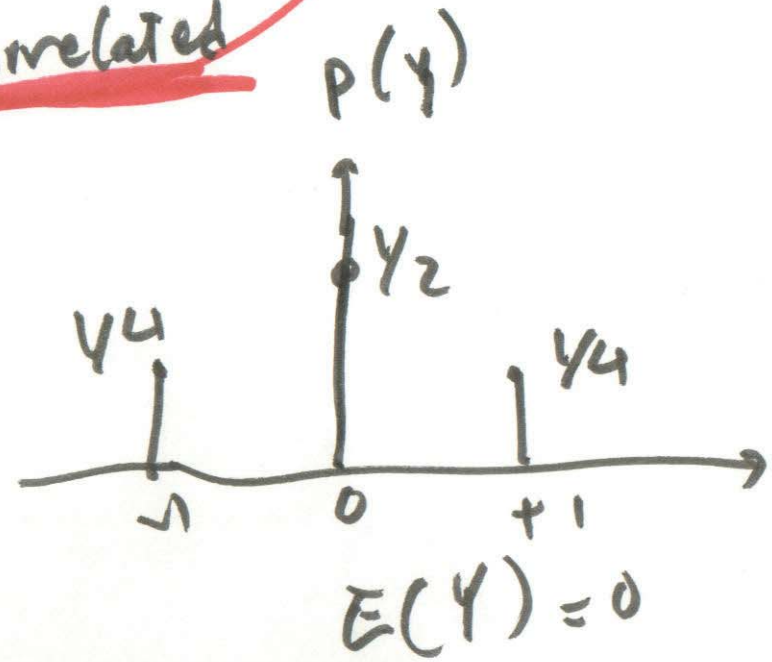 rrelated
P(Y)
1/2
1/4 1/4
-1 0 +1
E(Y) = 0